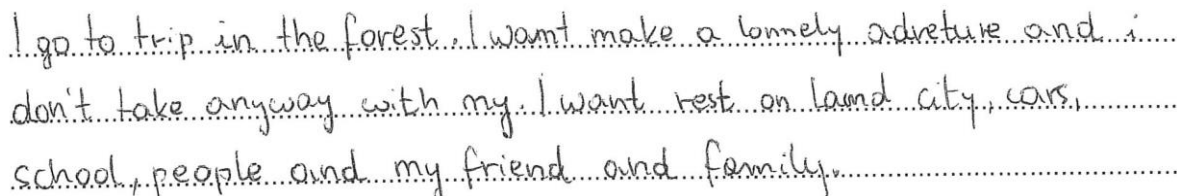 I go to trip in the forest. I want make a lonnely adveture and i
don't take anyway with my. I want rest on laund city, cars,
school, people and my friend and family.